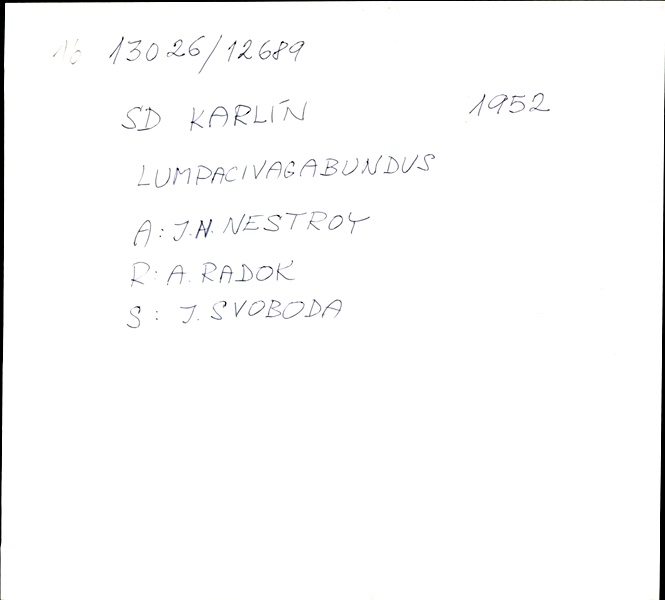 16 13026/12689
SD KARLÍN 1952
LUMPACIVAGABUNDUS
A: J.N. NESTROY
R: A. RADOK
S: J. SVOBODA